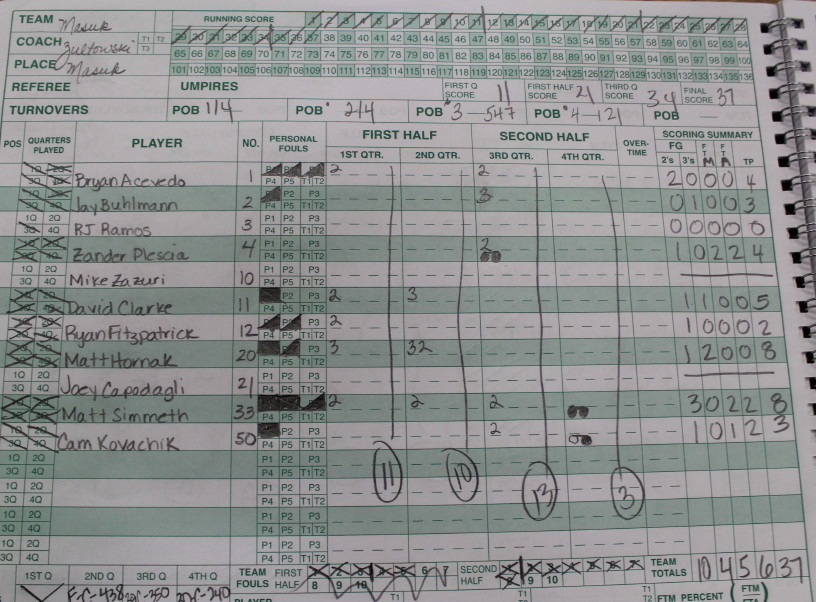 TEAM Masuk RUNNING SCORE 1 2 3 4 5 6 7 8 9 10 11 12 13 14 15 16 17 18 19 20 21 22 23 24 25 26 27 28
COACH Zultowski T1 T2 T3 29 30 31 32 33 34 35 36 37 38 39 40 41 42 43 44 45 46 47 48 49 50 51 52 53 54 55 56 57 58 59 60 61 62 63 64
65 66 67 68 69 70 71 72 73 74 75 76 77 78 79 80 81 82 83 84 85 86 87 88 89 90 91 92 93 94 95 96 97 98 99 100
PLACE Masuk 101 102 103 104 105 106 107 108 109 110 111 112 113 114 115 116 117 118 119 120 121 122 123 124 125 126 127 128 129 130 131 132 133 134 135 136
REFEREE UMPIRES FIRST Q SCORE 11 FIRST HALF SCORE 21 THIRD Q SCORE 34 FINAL SCORE 37
TURNOVERS POB 1/4 POB 2/4 POB 3-547 POB 4-121 POB —
POS QUARTERS PLAYED PLAYER NO. PERSONAL FOULS FIRST HALF SECOND HALF OVER-TIME SCORING SUMMARY
1ST QTR. 2ND QTR. 3RD QTR. 4TH QTR. FG 2's 3's FTM FTA TP
Bryan Acevedo 1 P4 P5 T1 T2 2 2 2 0 0 0 4
Jay Buhlmann 2 P2 P3 P4 P5 T1 T2 3 0 1 0 0 3
1Q 2Q 3Q 4Q RJ Ramos 3 P1 P2 P3 P4 P5 T1 T2 0 0 0 0 0
Zander Plescia 4 P1 P2 P3 P4 P5 T1 T2 2 1 0 2 2 4
1Q 2Q 3Q 4Q Mike Zazuri 10 P1 P2 P3 P4 P5 T1 T2
David Clarke 11 P2 P3 P4 P5 T1 T2 2 3 1 1 0 0 5
Ryan Fitzpatrick 12 P3 P4 P5 T1 T2 2 1 0 0 0 2
Matt Hornak 20 P3 P4 P5 T1 T2 3 32 1 2 0 0 8
1Q 2Q 3Q 4Q Joey Capodagli 21 P1 P2 P3 P4 P5 T1 T2
Matt Simmeth 33 P4 P5 T1 T2 2 2 2 3 0 2 2 8
Cam Kovachik 50 P2 P3 P4 P5 T1 T2 2 1 0 1 2 3
1Q 2Q 3Q 4Q P1 P2 P3 P4 P5 T1 T2 11 10 13 3
1Q 2Q 3Q 4Q P1 P2 P3 P4 P5 T1 T2
1Q 2Q 3Q 4Q P1 P2 P3 P4 P5 T1 T2
1Q 2Q 3Q 4Q P1 P2 P3 P4 P5 T1 T2
1ST Q 2ND Q 3RD Q 4TH Q TEAM FOULS FIRST HALF 6 7 8 9 10 SECOND HALF 8 9 10 TEAM TOTALS 10 4 5 6 37
PLAYER T1 T1 T2 FTM PERCENT (FTM